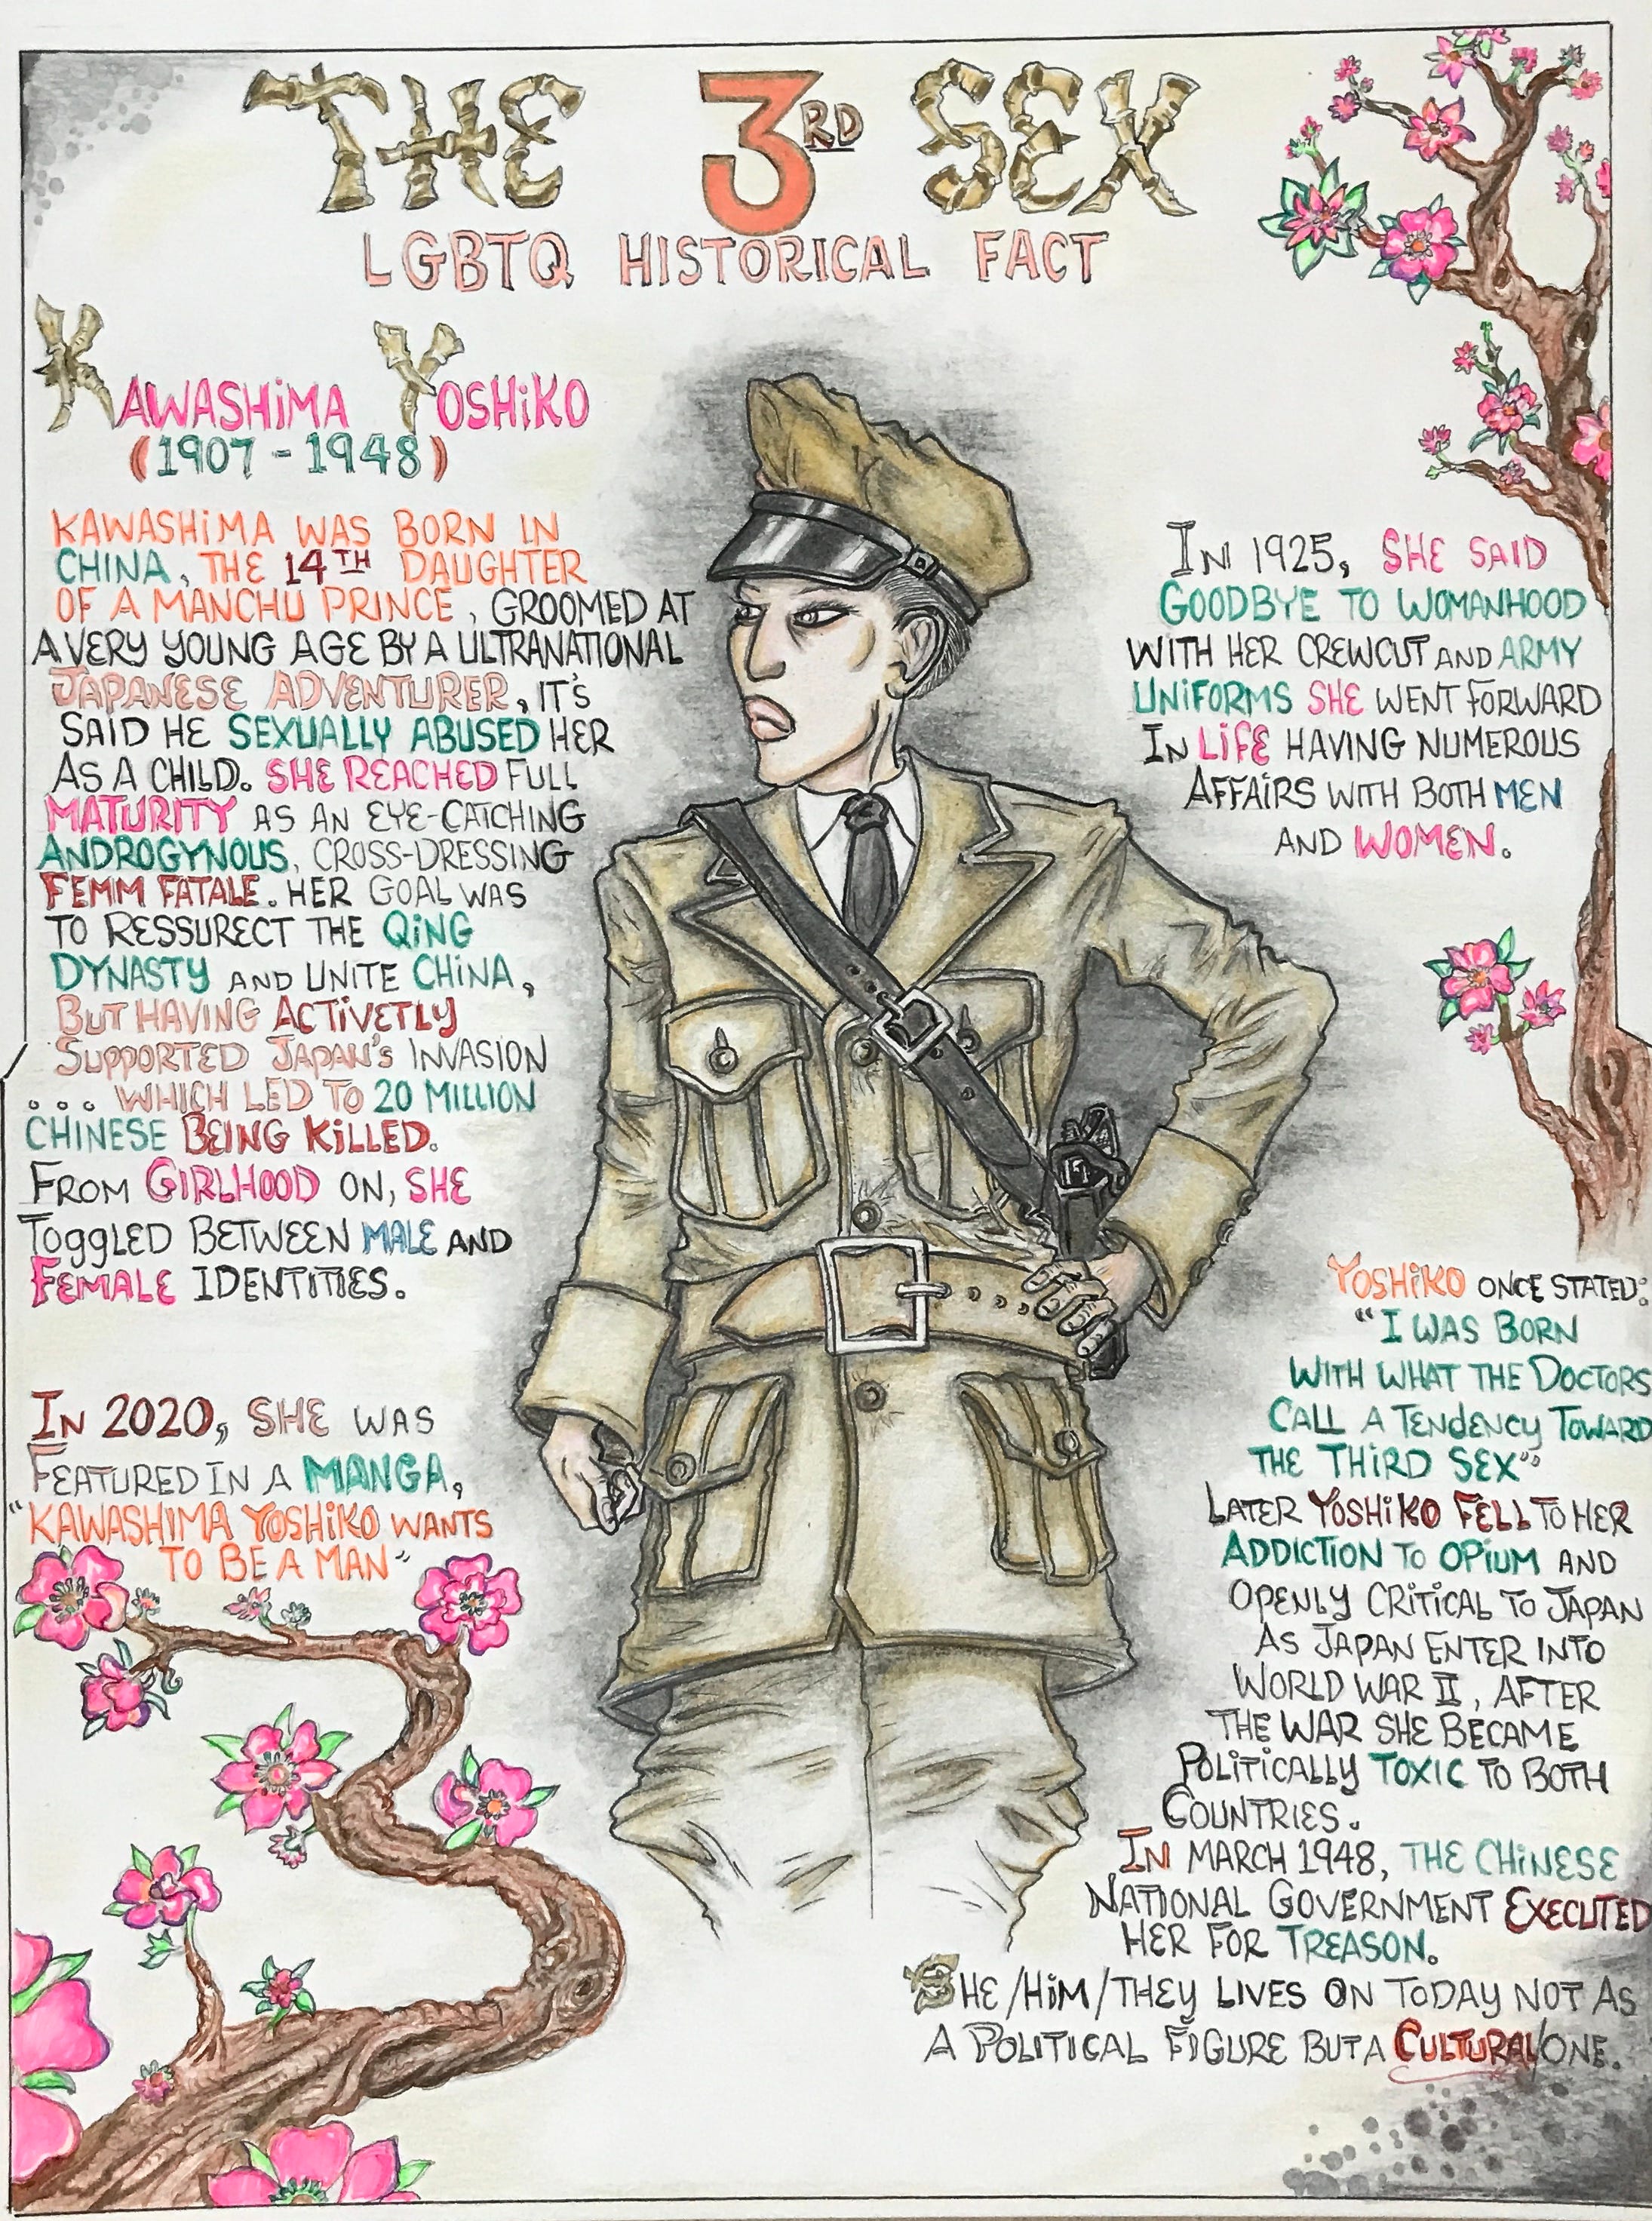 THE 3RD SEX
LGBTQ HISTORICAL FACT
KAWASHiMA YOSHiKO
(1907 - 1948)
KAWASHiMA WAS BORN IN
CHINA, THE 14TH DAUGHTER
OF A MANCHU PRINCE, GROOMED AT
A VERY YOUNG AGE BY A ULTRANATIONAL
JAPANESE ADVENTURER, IT'S
SAID HE SEXUALLY ABUSED HER
AS A CHILD. SHE REACHED FULL
MATURITY AS AN EYE-CATCHING
ANDROGYNOUS, CROSS-DRESSING
FEMM FATALE. HER GOAL WAS
TO RESSURECT THE QiNG
DYNASTY AND UNITE CHiNA,
BUT HAVING ACTiVETLY
SUPPORTED JAPAN's INVASION
... WHICH LED TO 20 MILLION
CHINESE BEING KiLLED.
FROM GIRLHOOD ON, SHE
TOggLED BETWEEN MALE AND
FEMALE IDENTITIES.
IN 2020, SHE WAS
FEATURED IN A MANGA,
"KAWASHIMA YOSHIKO WANTS
TO BE A MAN"
IN 1925, SHE SAID
GOODBYE TO WOMANHOOD
WITH HER CREWCUT AND ARMY
UNiFORMS SHE WENT FORWARD
IN LiFE HAVING NUMEROUS
AFFAiRS WITH BOTH MEN
AND WOMEN.
YOSHiKO ONCE STATED:
"I WAS BORN
WITH WHAT THE DOCTORS
CALL A TENdENCY TOWARD
THE THiRD SEX"
LATER YOSHiKO FELL TO HER
ADDICTION TO OPiUM AND
OPENLY CRiTiCAL TO JAPAN
AS JAPAN ENTER INTO
WORLD WAR II, AFTER
THE WAR SHE BECAME
POLiTiCALLY TOXIC TO BOTH
COUNTRIES.
IN MARCH 1948, THE CHiNESE
NATIONAL GOVERNMENT EXECUTED
HER FOR TREASON.
SHE/HiM/THEY LIVES ON TODAY NOT AS
A POLITICAL FIGURE BUT A CULTURAL/ONE.